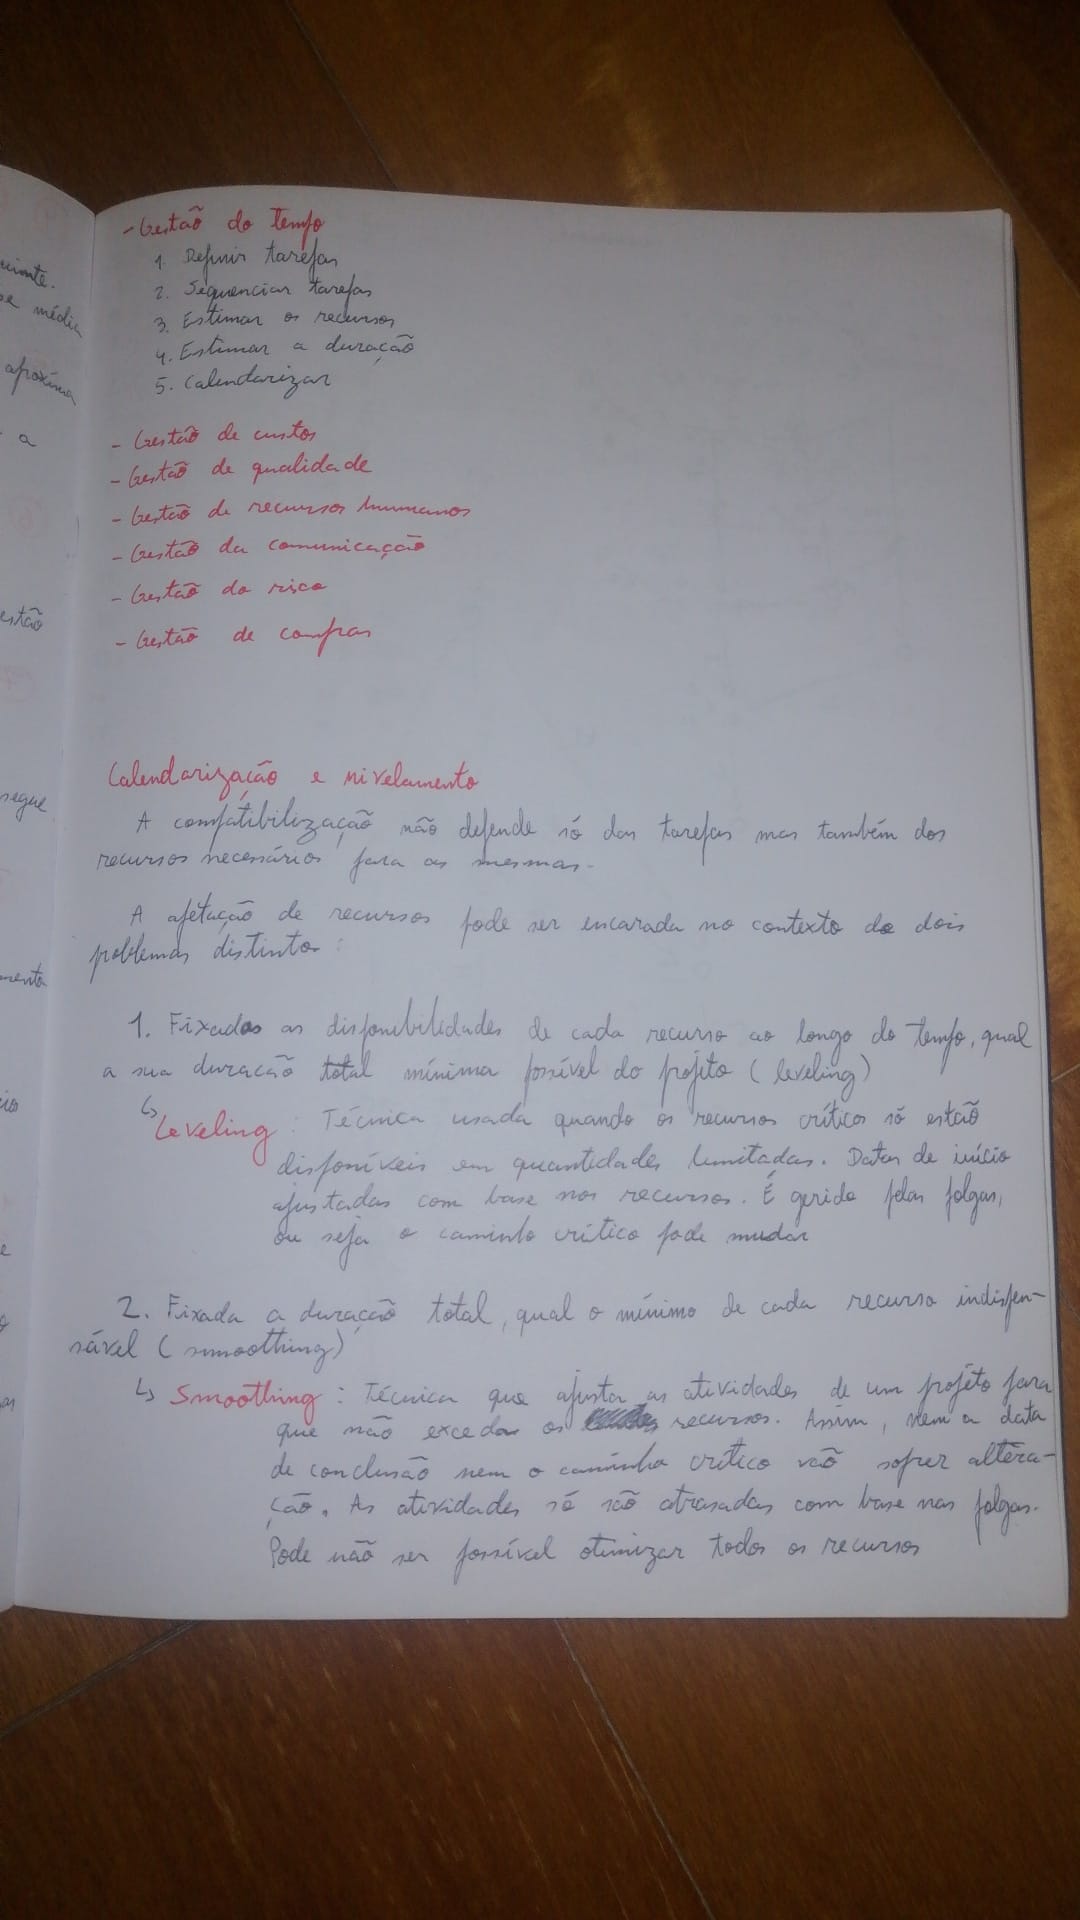 - Gestão do tempo
1. Definir tarefas
2. Sequenciar tarefas
3. Estimar os recursos
4. Estimar a duração
5. Calendarizar
- Gestão de custos
- Gestão de qualidade
- Gestão de recursos humanos
- Gestão da comunicação
- Gestão do risco
- Gestão de compras
Calendarização e nivelamento
A compatibilização não depende só das tarefas mas também dos
recursos necessários para as mesmas.
A afetação de recursos pode ser encarada no contexto de dois
problemas distintos:
1. Fixadas as disponibilidades de cada recurso ao longo do tempo, qual
a sua duração total mínima possível do projeto (leveling)
↳ Leveling: Técnica usada quando os recursos críticos só estão
disponíveis em quantidades limitadas. Datas de início
ajustadas com base nos recursos. É gerido pelas folgas,
ou seja o caminho crítico pode mudar
2. Fixada a duração total, qual o mínimo de cada recurso indispen-
sável (smoothing)
↳ Smoothing: Técnica que ajusta as atividades de um projeto para
que não exceda os recursos. Assim, nem a data
de conclusão nem o caminho crítico vão sofrer altera-
ção. As atividades só são atrasadas com base nas folgas.
Pode não ser possível otimizar todos os recursos
médica
aproxima
a
estão
segue
mento
e